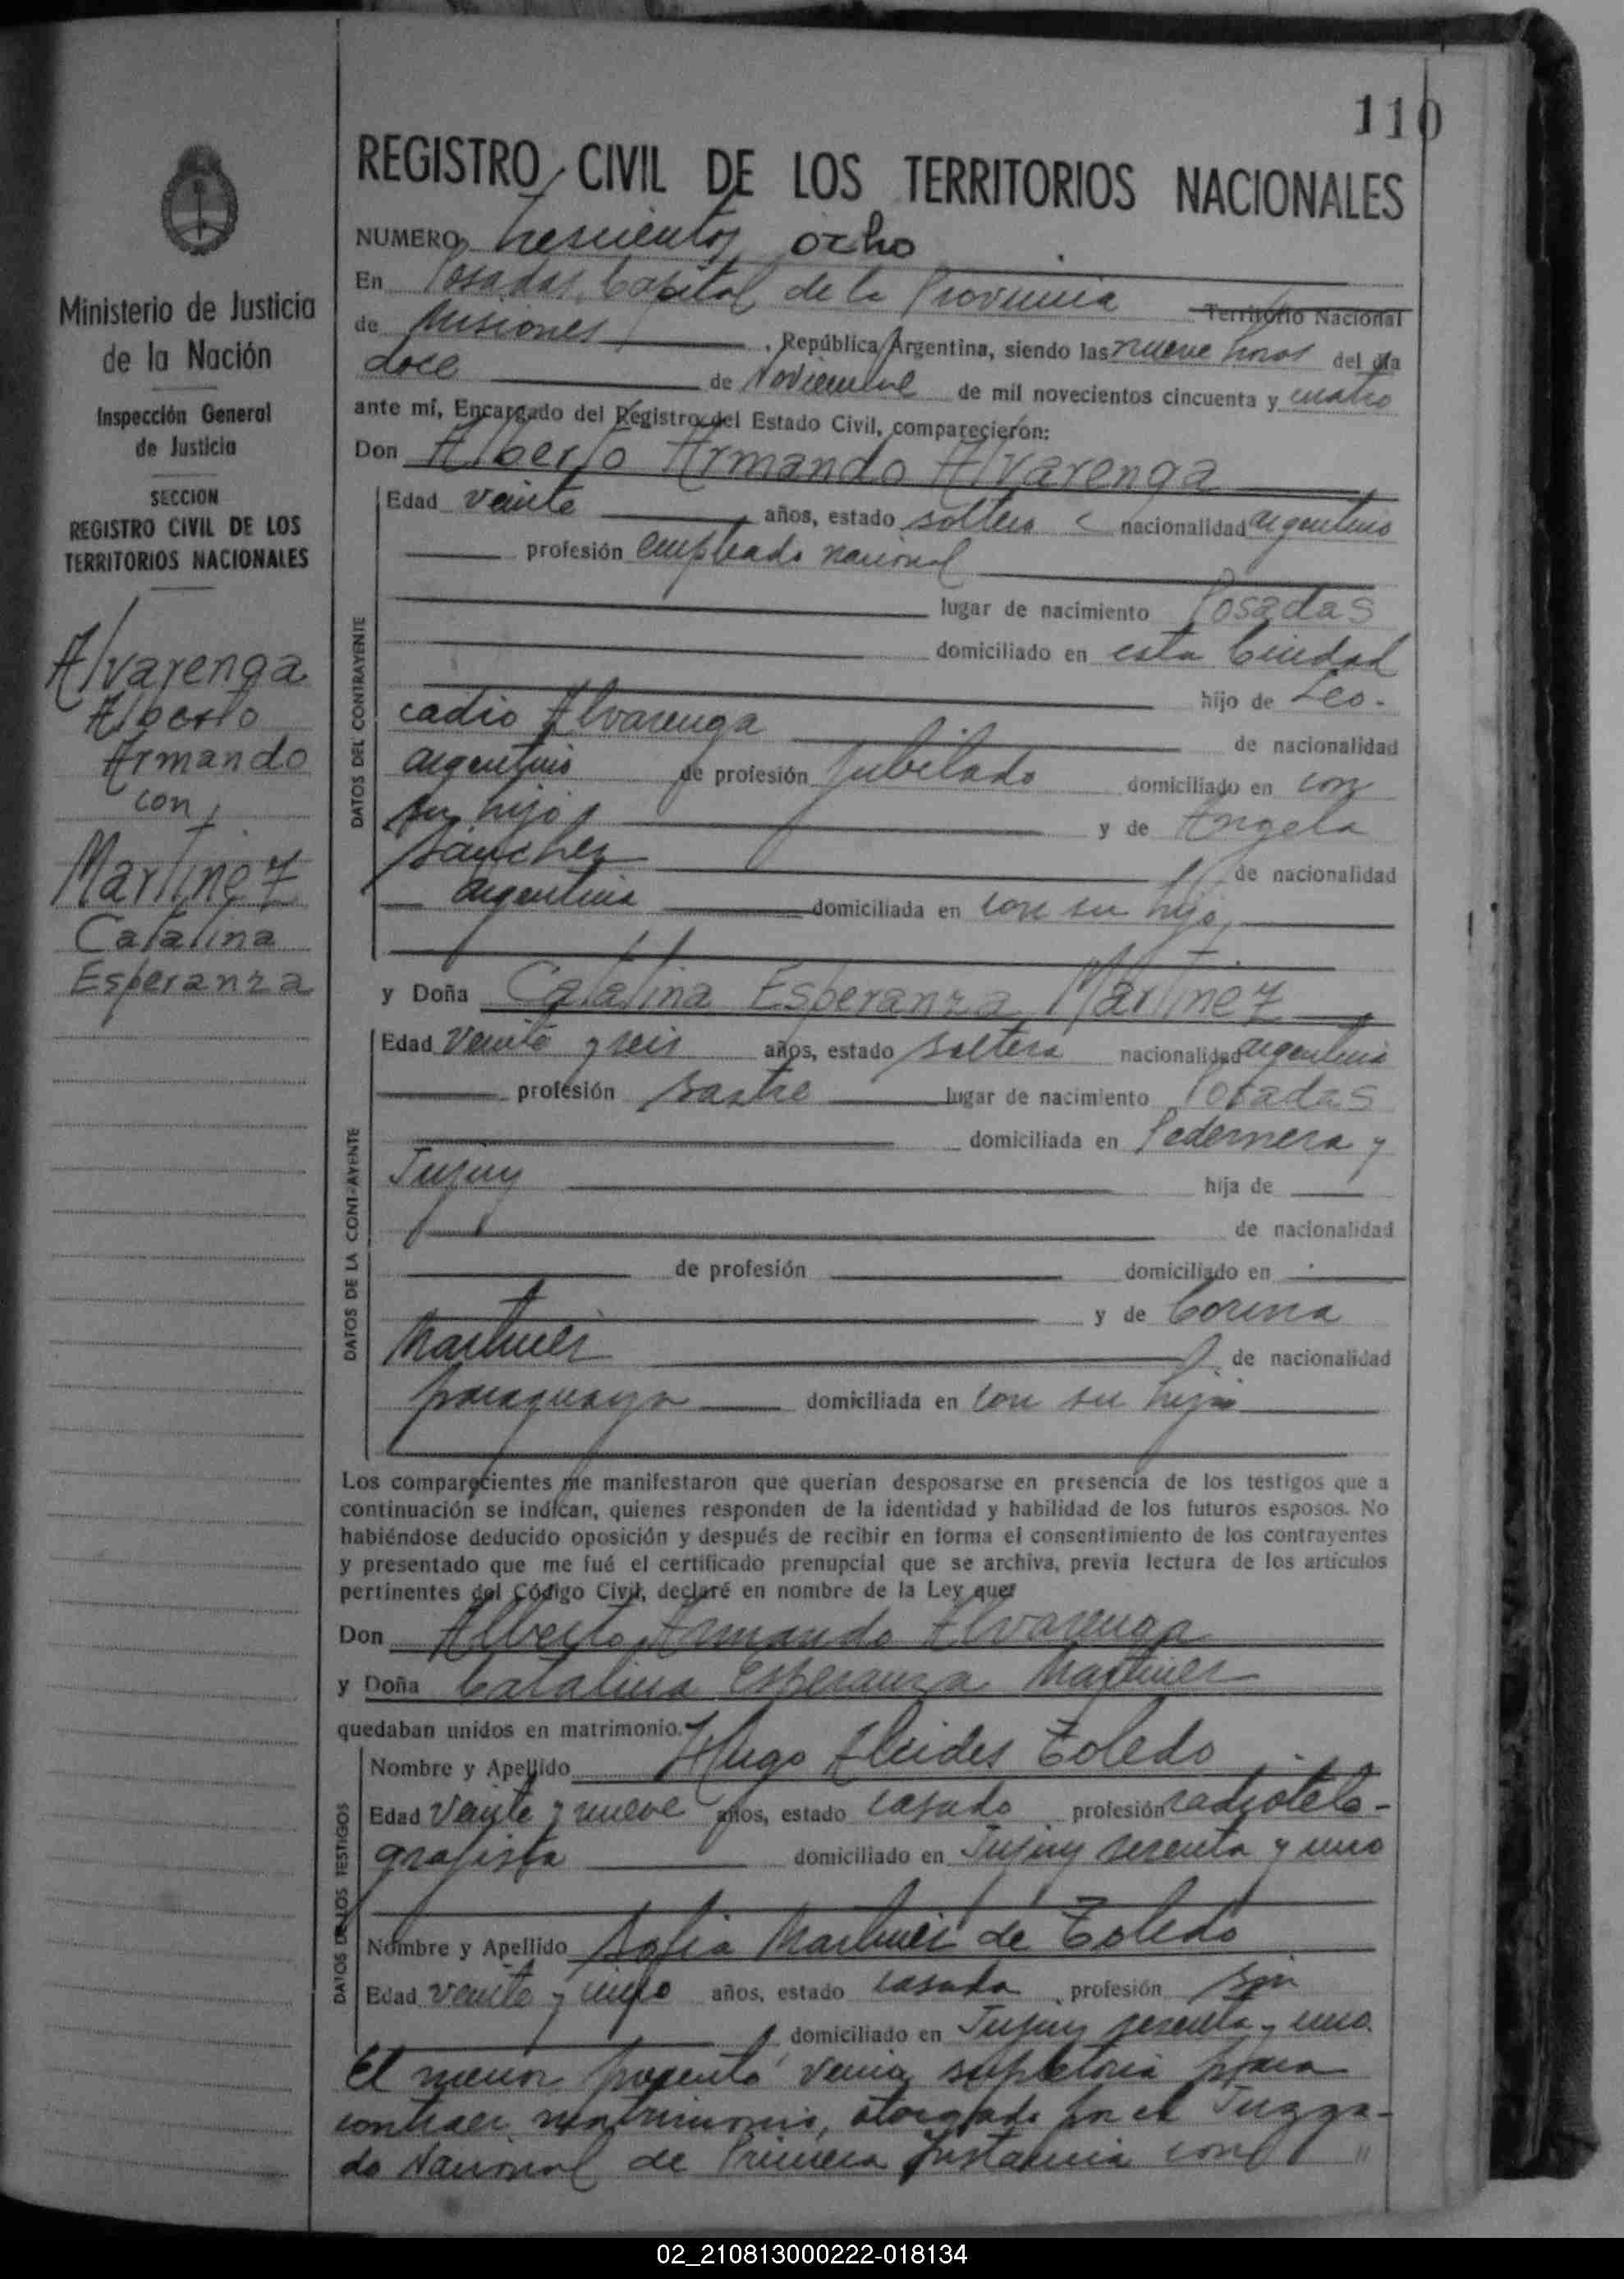 110
REGISTRO CIVIL DE LOS TERRITORIOS NACIONALES
NUMERO trescientos ocho
En Posadas, Capital de la Provincia Territorio Nacional
de Misiones, República Argentina, siendo las nueve horas del día
doce de Noviembre de mil novecientos cincuenta y cuatro
ante mí, Encargado del Registro del Estado Civil, comparecieron:
Don Alberto Armando Alvarenga
Edad veinte años, estado soltero nacionalidad argentino
profesión empleado nacional
lugar de nacimiento Posadas
domiciliado en esta Ciudad
hijo de Leo-
cadio Alvarenga de nacionalidad
argentino de profesión jubilado domiciliado en con
su hijo y de Angela
Sanchez de nacionalidad
argentina domiciliada en con su hijo
DATOS DEL CONTRAYENTE
y Doña Catalina Esperanza Martinez
Edad veinte y seis años, estado soltera nacionalidad argentina
profesión sastre lugar de nacimiento Posadas
domiciliada en Pedernera y
Jujuy hija de
de nacionalidad
de profesión domiciliado en
y de Corina
Martinez de nacionalidad
paraguaya domiciliada en con su hija
DATOS DE LA CONTRAYENTE
Los comparecientes me manifestaron que querían desposarse en presencia de los testigos que a
continuación se indican, quienes responden de la identidad y habilidad de los futuros esposos. No
habiéndose deducido oposición y después de recibir en forma el consentimiento de los contrayentes
y presentado que me fué el certificado prenupcial que se archiva, previa lectura de los artículos
pertinentes del Código Civil, declaré en nombre de la Ley que:
Don Alberto Armando Alvarenga
y Doña Catalina Esperanza Martinez
quedaban unidos en matrimonio.
Nombre y Apellido Hugo Alcides Toledo
Edad veinte y nueve años, estado casado profesión radiotele-
grafista domiciliado en Jujuy sesenta y uno
Nombre y Apellido Sofia Martinez de Toledo
Edad veinte y años, estado casada profesión sin
domiciliado en Jujuy sesenta y uno
DATOS DE LOS TESTIGOS
El menor presentó venia supletoria para
contraer matrimonio, otorgada por el Juzga-
do Nacional de Primera Instancia con "
Ministerio de Justicia
de la Nación
Inspección General
de Justicia
SECCION
REGISTRO CIVIL DE LOS
TERRITORIOS NACIONALES
Alvarenga
Alberto
Armando
con
Martinez
Catalina
Esperanza
02_210813000222-018134